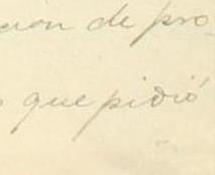 ción de pro
que pidió